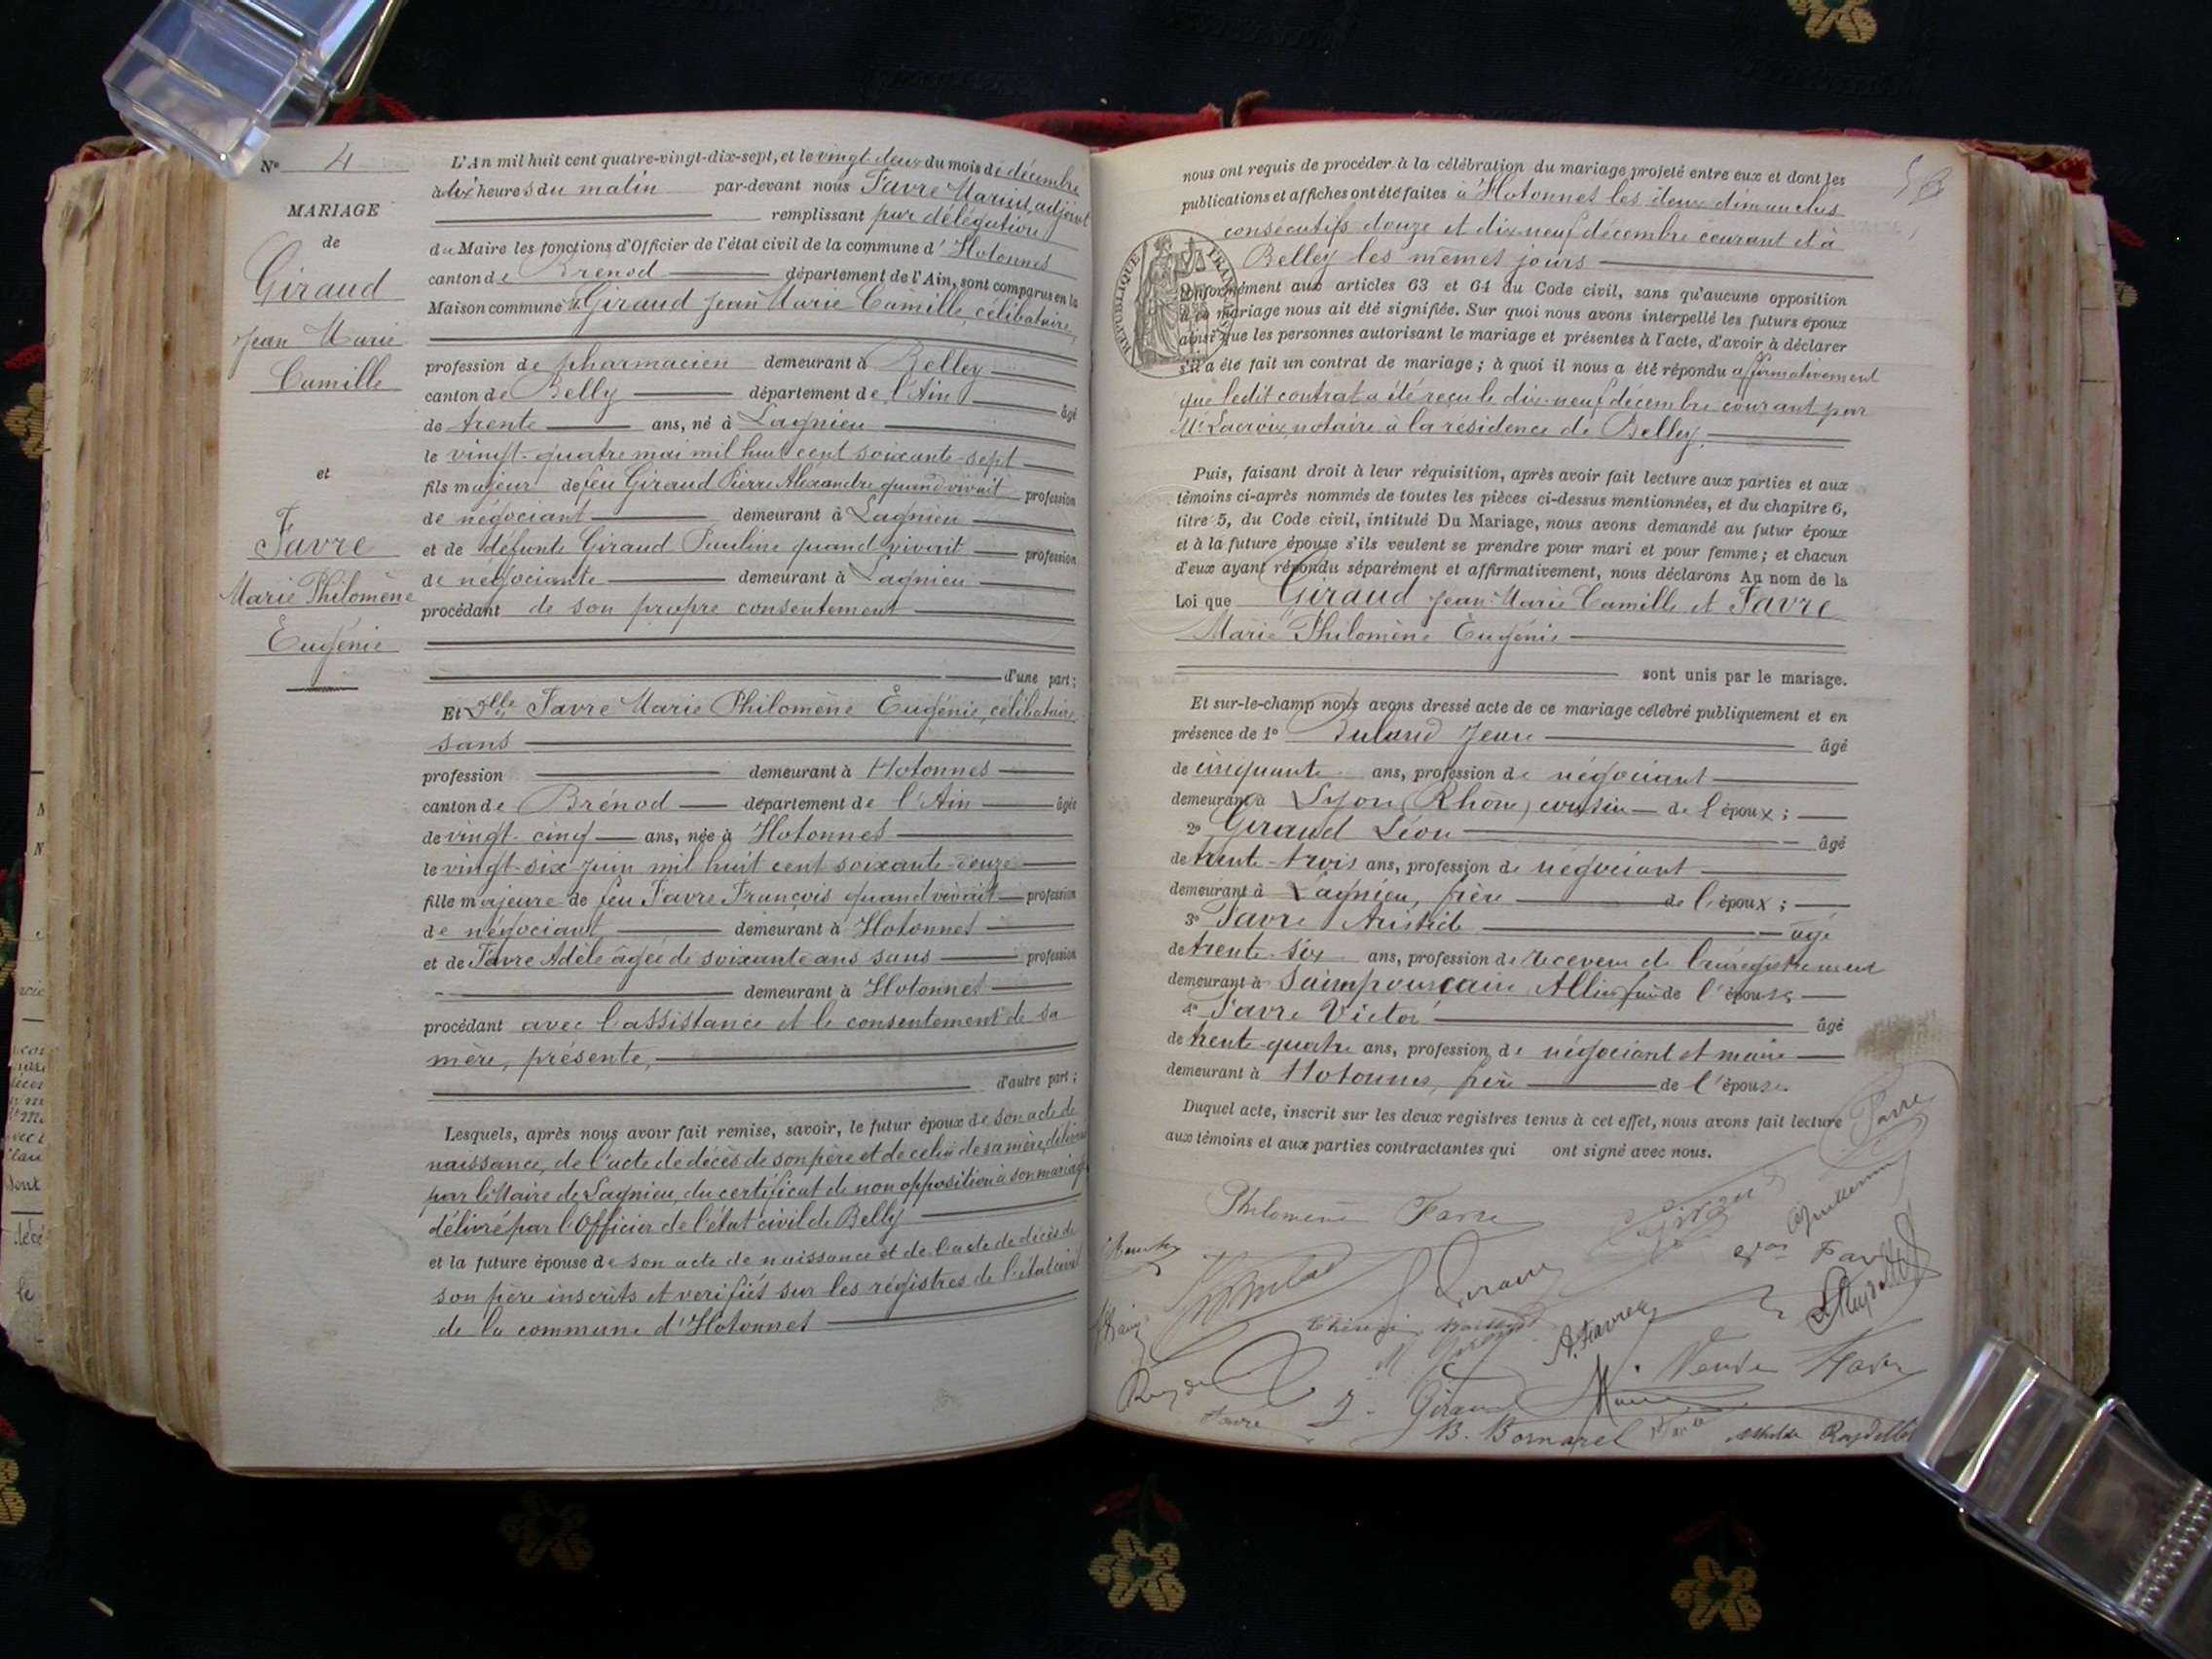 N° 4
MARIAGE
de
Giraud
Jean Marie
Camille
et
Favre
Marie Philomène
Eugénie
L'An mil huit cent quatre-vingt-dix-sept, et le vingt-deux du mois de décembre
à dix heures du matin par-devant nous Favre Marius, adjoint
remplissant par délégation
du Maire les fonctions d'Officier de l'état civil de la commune d'Hotonnes
canton de Brénod département de l'Ain, sont comparus en la
Maison commune Giraud Jean Marie Camille, célibataire,
profession de pharmacien demeurant à Belley
canton de Belly département de l'Ain âgé
de trente ans, né à Lagnieu
le vingt-quatre mai mil huit cent soixante-sept
fils majeur de feu Giraud Pierre Alexandre quand vivait profession
de négociant demeurant à Lagnieu
et de défunte Giraud Pauline quand vivait profession
de négociante demeurant à Lagnieu
procédant de son propre consentement
d'une part;
Et Dlle Favre Marie Philomène Eugénie, célibataire
sans
profession demeurant à Hotonnes
canton de Brénod département de l'Ain âgée
de vingt-cinq ans, née à Hotonnes
le vingt-six juin mil huit cent soixante-douze
fille majeure de feu Favre François quand vivait profession
de négociant, demeurant à Hotonnes
et de Favre Adèle âgée de soixante ans sans profession
demeurant à Hotonnes
procédant avec l'assistance et le consentement de sa
mère, présente,
d'autre part;
Lesquels, après nous avoir fait remise, savoir, le futur époux de son acte de
naissance, de l'acte de décès de son père et de celui de sa mère, délivrés
par le Maire de Lagnieu, du certificat de non opposition à son mariage
délivré par l'Officier de l'état civil de Belly
et la future épouse de son acte de naissance et de l'acte de décès de
son père inscrits et vérifiés sur les régistres de l'état civil
de la commune d'Hotonnes
nous ont requis de procéder à la célébration du mariage projeté entre eux et dont les
publications et affiches ont été faites à Hotonnes les deux dimanches
consécutifs douze et dix neuf décembre courant et à
Belley les mêmes jours
RÉPUBLIQUE FRANÇAISE
Conformément aux articles 63 et 64 du Code civil, sans qu'aucune opposition
à ce mariage nous ait été signifiée. Sur quoi nous avons interpellé les futurs époux
ainsi que les personnes autorisant le mariage et présentes à l'acte, d'avoir à déclarer
s'il a été fait un contrat de mariage; à quoi il nous a été répondu affirmativement
que ledit contrat a été reçu le dix-neuf décembre courant par
Me Lacroix, notaire à la résidence de Belley.
Puis, faisant droit à leur réquisition, après avoir fait lecture aux parties et aux
témoins ci-après nommés de toutes les pièces ci-dessus mentionnées, et du chapitre 6,
titre 5, du Code civil, intitulé Du Mariage, nous avons demandé au futur époux
et à la future épouse s'ils veulent se prendre pour mari et pour femme; et chacun
d'eux ayant répondu séparément et affirmativement, nous déclarons Au nom de la
Loi que Giraud Jean-Marie Camille et Favre
Marie Philomène Eugénie
sont unis par le mariage.
Et sur-le-champ nous avons dressé acte de ce mariage célébré publiquement et en
présence de 1° Buland Jean âgé
de cinquante ans, profession de négociant
demeurant à Lyon (Rhône) cousin de l'époux;
2° Giraud Léon âgé
de trente-trois ans, profession de négociant
demeurant à Lagnieu, frère de l'époux;
3° Favre Aristide âgé
de trente-six ans, profession de receveur de l'enregistrement
demeurant à Saimpourçain Allier frère de l'épouse
4° Favre Victor âgé
de trente-quatre ans, profession de négociant et maire
demeurant à Hotonnes, frère de l'épouse.
Duquel acte, inscrit sur les deux registres tenus à cet effet, nous avons fait lecture
aux témoins et aux parties contractantes qui ont signé avec nous.
Favre
Philomène Favre
C. Giraud
Giraud
A. Favre
Veuve Favre
Ruydellet
Favre
J. Giraud
B. Bornarel
Mathilde Ruydellet